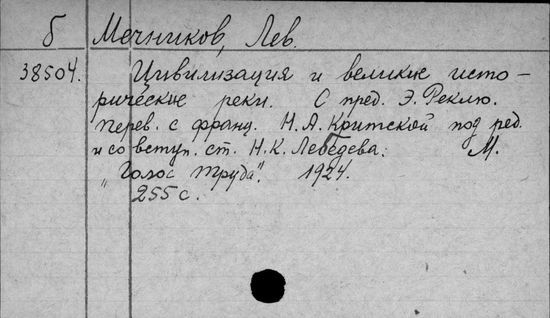 б Мечников, Лев.
38504. Цивилизация и великие исто-
рические реки. С пред. Э. Реклю.
Перев. с франц. Н. А. Критской под ред.
и со вступ. ст. Н. К. Лебедева. М.
„Голос Труда". 1924.
255 с.